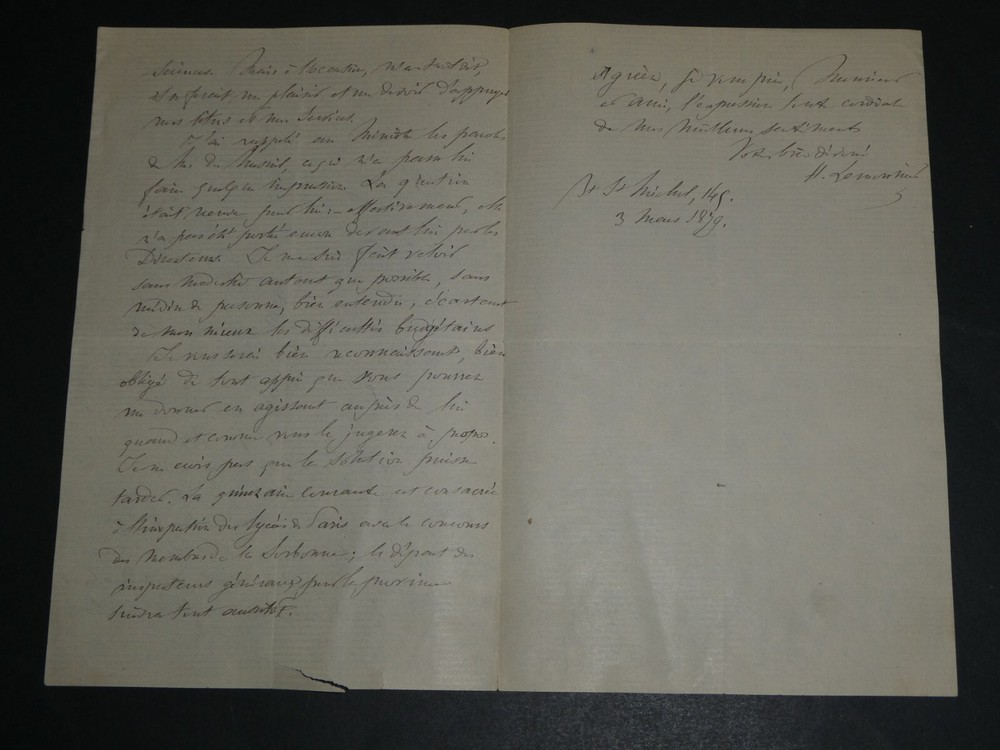 Sciences. Mais à l'occasion, m'a-t-il dit,
il se ferait un plaisir et un devoir d'appuyer
mes titres et mes services.
J'ai rappelé au Ministre les paroles
de M. du Mesnil, ce qui n'a pas
faire quelque impression. La question
était neuve pour lui : effectivement, elle
n'a pas été portée encore devant lui par les
Directeurs. Je me suis fait valoir
sans modestie autant que possible, sans
médire de personne, bien entendu, écartant
de mon mieux les difficultés budgétaires
Je vous serai bien reconnaissant, bien
obligé de tout appui que vous pourrez
me donner en agissant auprès de lui
quand et comme vous le jugerez à propos.
Je ne crois pas que la solution puisse
tarder. La quinzaine courante est consacrée
à l'inspection des lycées de Paris avec le concours
des membres de la Sorbonne ; le départ des
inspecteurs généraux pour la province
suivra tout aussitôt.
Agréez, je vous prie, Monsieur
et ami, l'expression toute cordiale
de mes meilleurs sentiments
Votre bien dévoué
H.
Bd St Michel, 145.
3 Mars 1879.